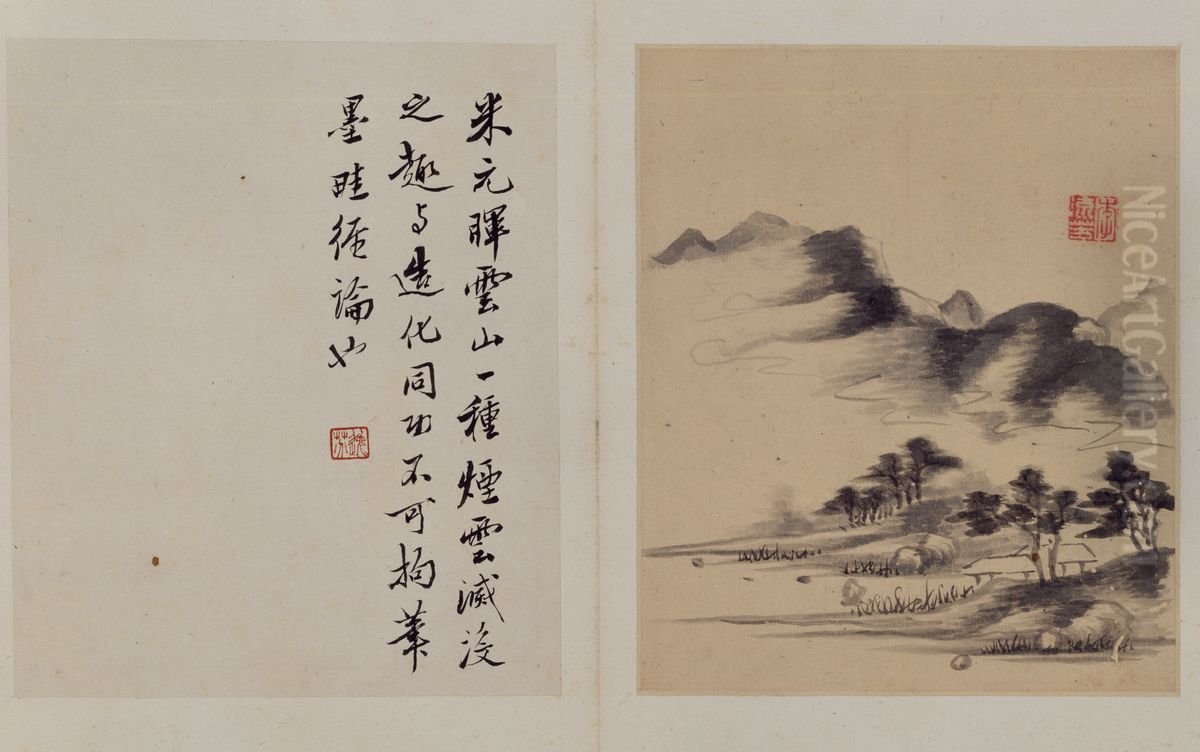 米元暉雲山一種煙雲滅沒
之趣与造化同功不可拘筆
墨畦徑論也
NiceArtGallery